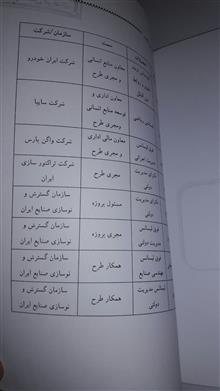 سازمان/شرکت
سمت
شرکت ایران خودرو
معاون منابع انسانی
و مجری طرح
شرکت سایپا
معاون اداری و
توسعه منابع انسانی
ومجری طرح
شرکت واگن پارس
معاون مالی اداری
و مجری طرح
فوق لیسانس
شرکت تراکتور سازی
ایران
مجری طرح
دکترای مدیریت
دولتی
سازمان گسترش و
نوسازی صنایع ایران
مسئول پروژه
دکترای مدیریت
دولتی
سازمان گسترش و
نوسازی صنایع ایران
مجری پروژه
فوق لیسانس
مدیریت دولتی
سازمان گسترش و
نوسازی صنایع ایران
همکار طرح
فوق لیسانس
مهندسی صنایع
سازمان گسترش و
نوسازی صنایع ایران
همکار طرح
لیسانس مدیریت
دولتی